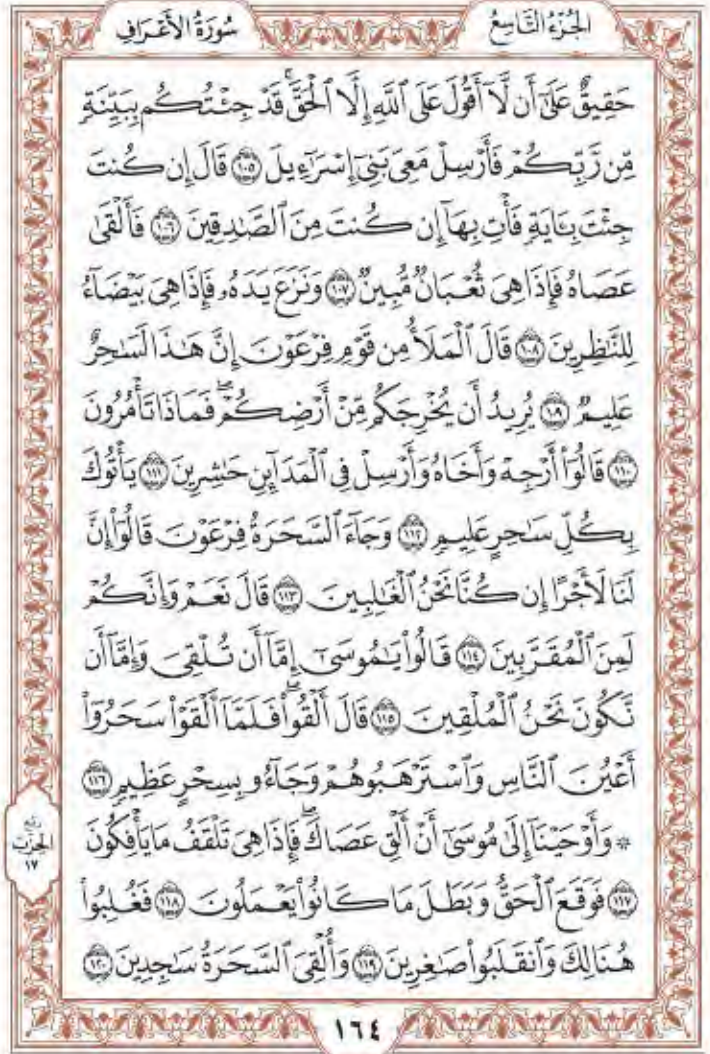 الجُزْءُ التَّاسِعُ سُورَةُ الأَعْرَافِ
حَقِيقٌ عَلَىٰٓ أَن لَّآ أَقُولَ عَلَى ٱللَّهِ إِلَّا ٱلْحَقَّۚ قَدْ جِئْتُكُم بِبَيِّنَةٍ
مِّن رَّبِّكُمْ فَأَرْسِلْ مَعِىَ بَنِىٓ إِسْرَٰٓءِيلَ ١٠٥ قَالَ إِن كُنتَ
جِئْتَ بِـَٔايَةٍ فَأْتِ بِهَآ إِن كُنتَ مِنَ ٱلصَّـٰدِقِينَ ١٠٦ فَأَلْقَىٰ
عَصَاهُ فَإِذَا هِىَ ثُعْبَانٌ مُّبِينٌ ١٠٧ وَنَزَعَ يَدَهُۥ فَإِذَا هِىَ بَيْضَآءُ
لِلنَّـٰظِرِينَ ١٠٨ قَالَ ٱلْمَلَأُ مِن قَوْمِ فِرْعَوْنَ إِنَّ هَـٰذَا لَسَـٰحِرٌ
عَلِيمٌ ١٠٩ يُرِيدُ أَن يُخْرِجَكُم مِّنْ أَرْضِكُمْۖ فَمَاذَا تَأْمُرُونَ
١١٠ قَالُوٓا۟ أَرْجِهْ وَأَخَاهُ وَأَرْسِلْ فِى ٱلْمَدَآئِنِ حَـٰشِرِينَ ١١١ يَأْتُوكَ
بِكُلِّ سَـٰحِرٍ عَلِيمٍ ١١٢ وَجَآءَ ٱلسَّحَرَةُ فِرْعَوْنَ قَالُوٓا۟ إِنَّ
لَنَا لَأَجْرًا إِن كُنَّا نَحْنُ ٱلْغَـٰلِبِينَ ١١٣ قَالَ نَعَمْ وَإِنَّكُمْ
لَمِنَ ٱلْمُقَرَّبِينَ ١١٤ قَالُوا۟ يَـٰمُوسَىٰٓ إِمَّآ أَن تُلْقِىَ وَإِمَّآ أَن
نَّكُونَ نَحْنُ ٱلْمُلْقِينَ ١١٥ قَالَ أَلْقُوا۟ۖ فَلَمَّآ أَلْقَوْا۟ سَحَرُوٓا۟
أَعْيُنَ ٱلنَّاسِ وَٱسْتَرْهَبُوهُمْ وَجَآءُو بِسِحْرٍ عَظِيمٍ ١١٦
۞ وَأَوْحَيْنَآ إِلَىٰ مُوسَىٰٓ أَنْ أَلْقِ عَصَاكَۖ فَإِذَا هِىَ تَلْقَفُ مَا يَأْفِكُونَ
١١٧ فَوَقَعَ ٱلْحَقُّ وَبَطَلَ مَا كَانُوا۟ يَعْمَلُونَ ١١٨ فَغُلِبُوا۟
هُنَالِكَ وَٱنقَلَبُوا۟ صَـٰغِرِينَ ١١٩ وَأُلْقِىَ ٱلسَّحَرَةُ سَـٰجِدِينَ ١٢٠
رُبْع
الحِزْب
١٧
١٦٤